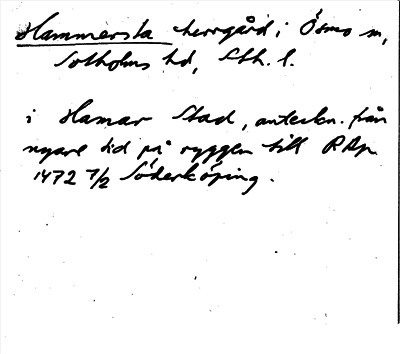 Hammersta herrgård i Ösmo sn,
Sotholms hd, Sth. l.
i Hamar Stad, anteckn. från
nyare tid på ryggen till RAp
1472 7/2 Söderköping.